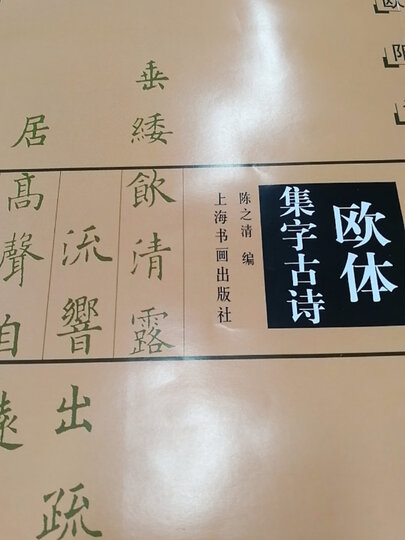 欧阳
欧体
集字古诗
陈之清 编
上海书画出版社
垂緌飲清露
流響出疏
居髙聲自遠